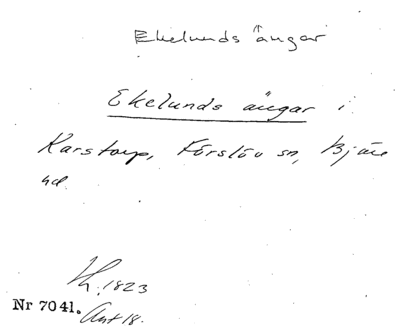 Ekelunds ängar
Ekelunds ängar i
Karstorp, Förslöv sn, Bjäre
hd.
Lh. 1823
Nr 7041. Akt 18.